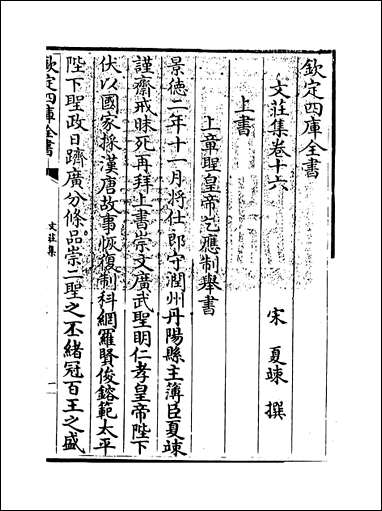 欽定四庫全書
文莊集卷十六
宋 夏竦 撰
上書
上章聖皇帝乞應制舉書
景德二年十一月將仕郎守潤州丹陽縣主簿臣夏竦
謹齋戒昧死再拜上書崇文廣武聖明仁孝皇帝陛下
伏以國家採漢唐故事恢復制科網羅賢俊鎔範太平
陛下聖政日躋廣分條品崇二聖之丕緒冠百王之盛
欽定四庫全書
文莊集
一